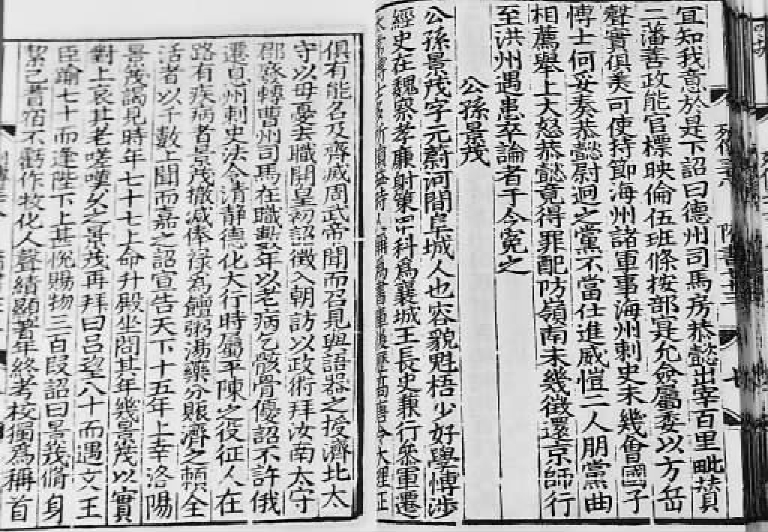 宜知我意於是下詔曰德州司馬房恭懿出宰百里毗贊
二藩善政能官標映倫伍班條按部寔允僉屬委以方岳
聲實俱美可使持節海州諸軍事海州刺史未幾會國子
博士何妥奏恭懿尉迥之黨不當仕進威愷二人朋黨曲
相薦舉上大怒恭懿竟得罪配防嶺南未幾徵還京師行
至洪州遇患卒論者于今冤之
公孫景茂
公孫景茂字元蔚河間阜城人也容貌魁梧少好學博涉
經史在魏察孝廉射策甲科為襄城王長史兼行參軍遷
太常博士多所損益時人稱為書庫後歷高唐令大理正
俱有能名及齊滅周武帝聞而召見與語器之授濟北太
守以母憂去職開皇初詔徵入朝訪以政術拜汝南太守
郡廢轉曹州司馬在職數年以老病乞骸骨優詔不許俄
遷息州刺史法令清靜德化大行時屬平陳之役征人在
路有疾病者景茂撤減俸祿為饘粥湯藥分賑濟之賴全
活者以千數上聞而嘉之詔宣告天下十五年上幸洛陽
景茂謁見時年七十七上命升殿坐問其年幾景茂以實
對上哀其老嗟嘆久之景茂再拜曰呂望八十而遇文王
臣踰七十而逢陛下上甚悅賜物三百段詔曰景茂脩身
潔己耆宿不虧作牧化人聲績顯著年終考校獨為稱首